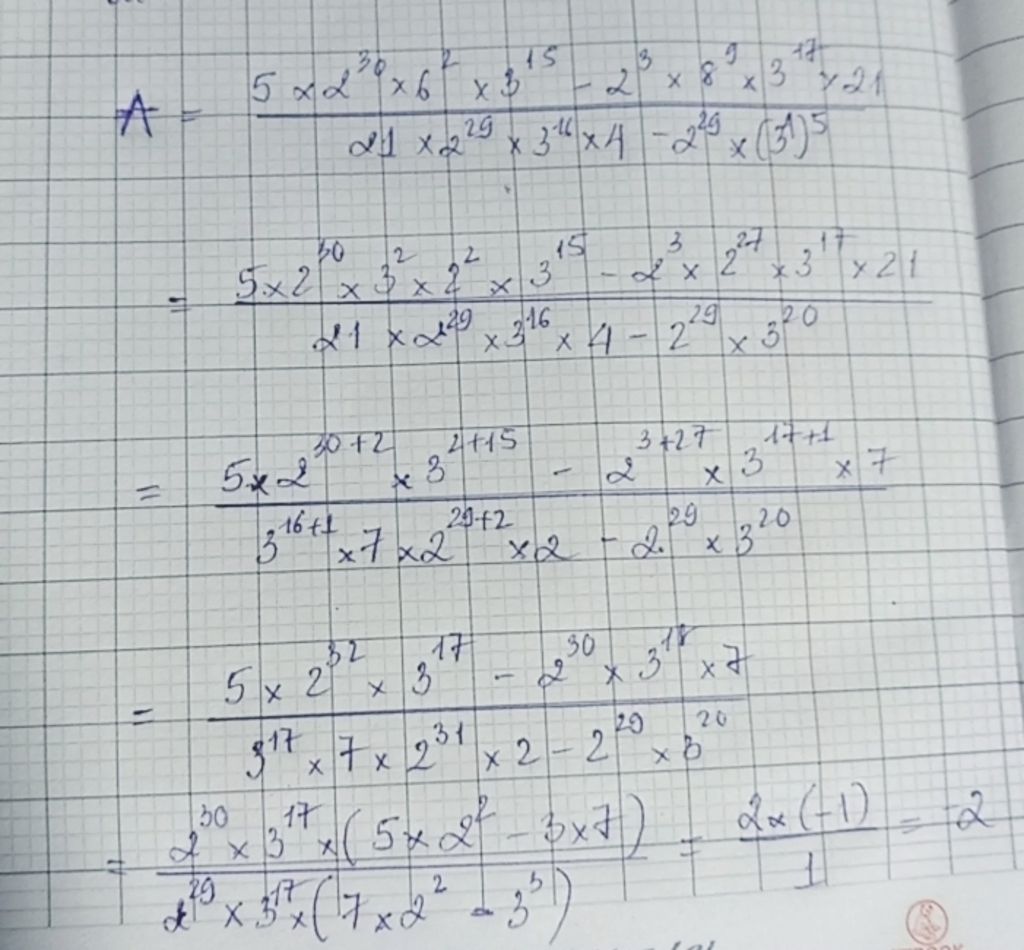 A = \frac{5 \times 2^{30} \times 6^{2} \times 3^{15} - 2^{3} \times 8^{9} \times 3^{17} \times 21}{21 \times 2^{29} \times 3^{16} \times 4 - 2^{29} \times (3^{4})^{5}}
= \frac{5 \times 2^{30} \times 3^{2} \times 2^{2} \times 3^{15} - 2^{3} \times 2^{27} \times 3^{17} \times 21}{21 \times 2^{29} \times 3^{16} \times 4 - 2^{29} \times 3^{20}}
= \frac{5 \times 2^{30+2} \times 3^{2+15} - 2^{3+27} \times 3^{17+1} \times 7}{3^{16+1} \times 7 \times 2^{29+2} \times 2 - 2^{29} \times 3^{20}}
= \frac{5 \times 2^{32} \times 3^{17} - 2^{30} \times 3^{18} \times 7}{3^{17} \times 7 \times 2^{31} \times 2 - 2^{29} \times 3^{20}}
= \frac{2^{30} \times 3^{17} \times (5 \times 2^{2} - 3 \times 7)}{2^{29} \times 3^{17} \times (7 \times 2^{2} - 3^{3})} = \frac{2 \times (-1)}{1} = -2